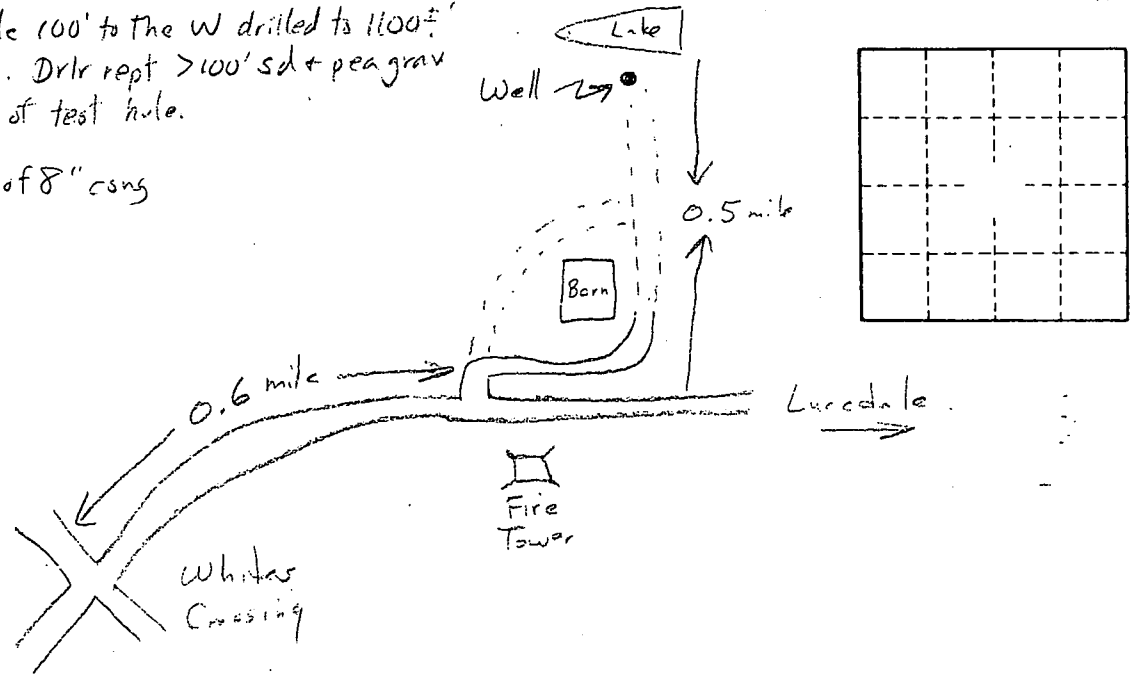 100' to the W drilled to 1100±'
. Drlr rept >100' sd + pea grav
of test hole.
of 8" csng
Lake
Well
0.5 mile
Barn
0.6 mile
Lucedale
Fire
Tower
Whites
Crossing